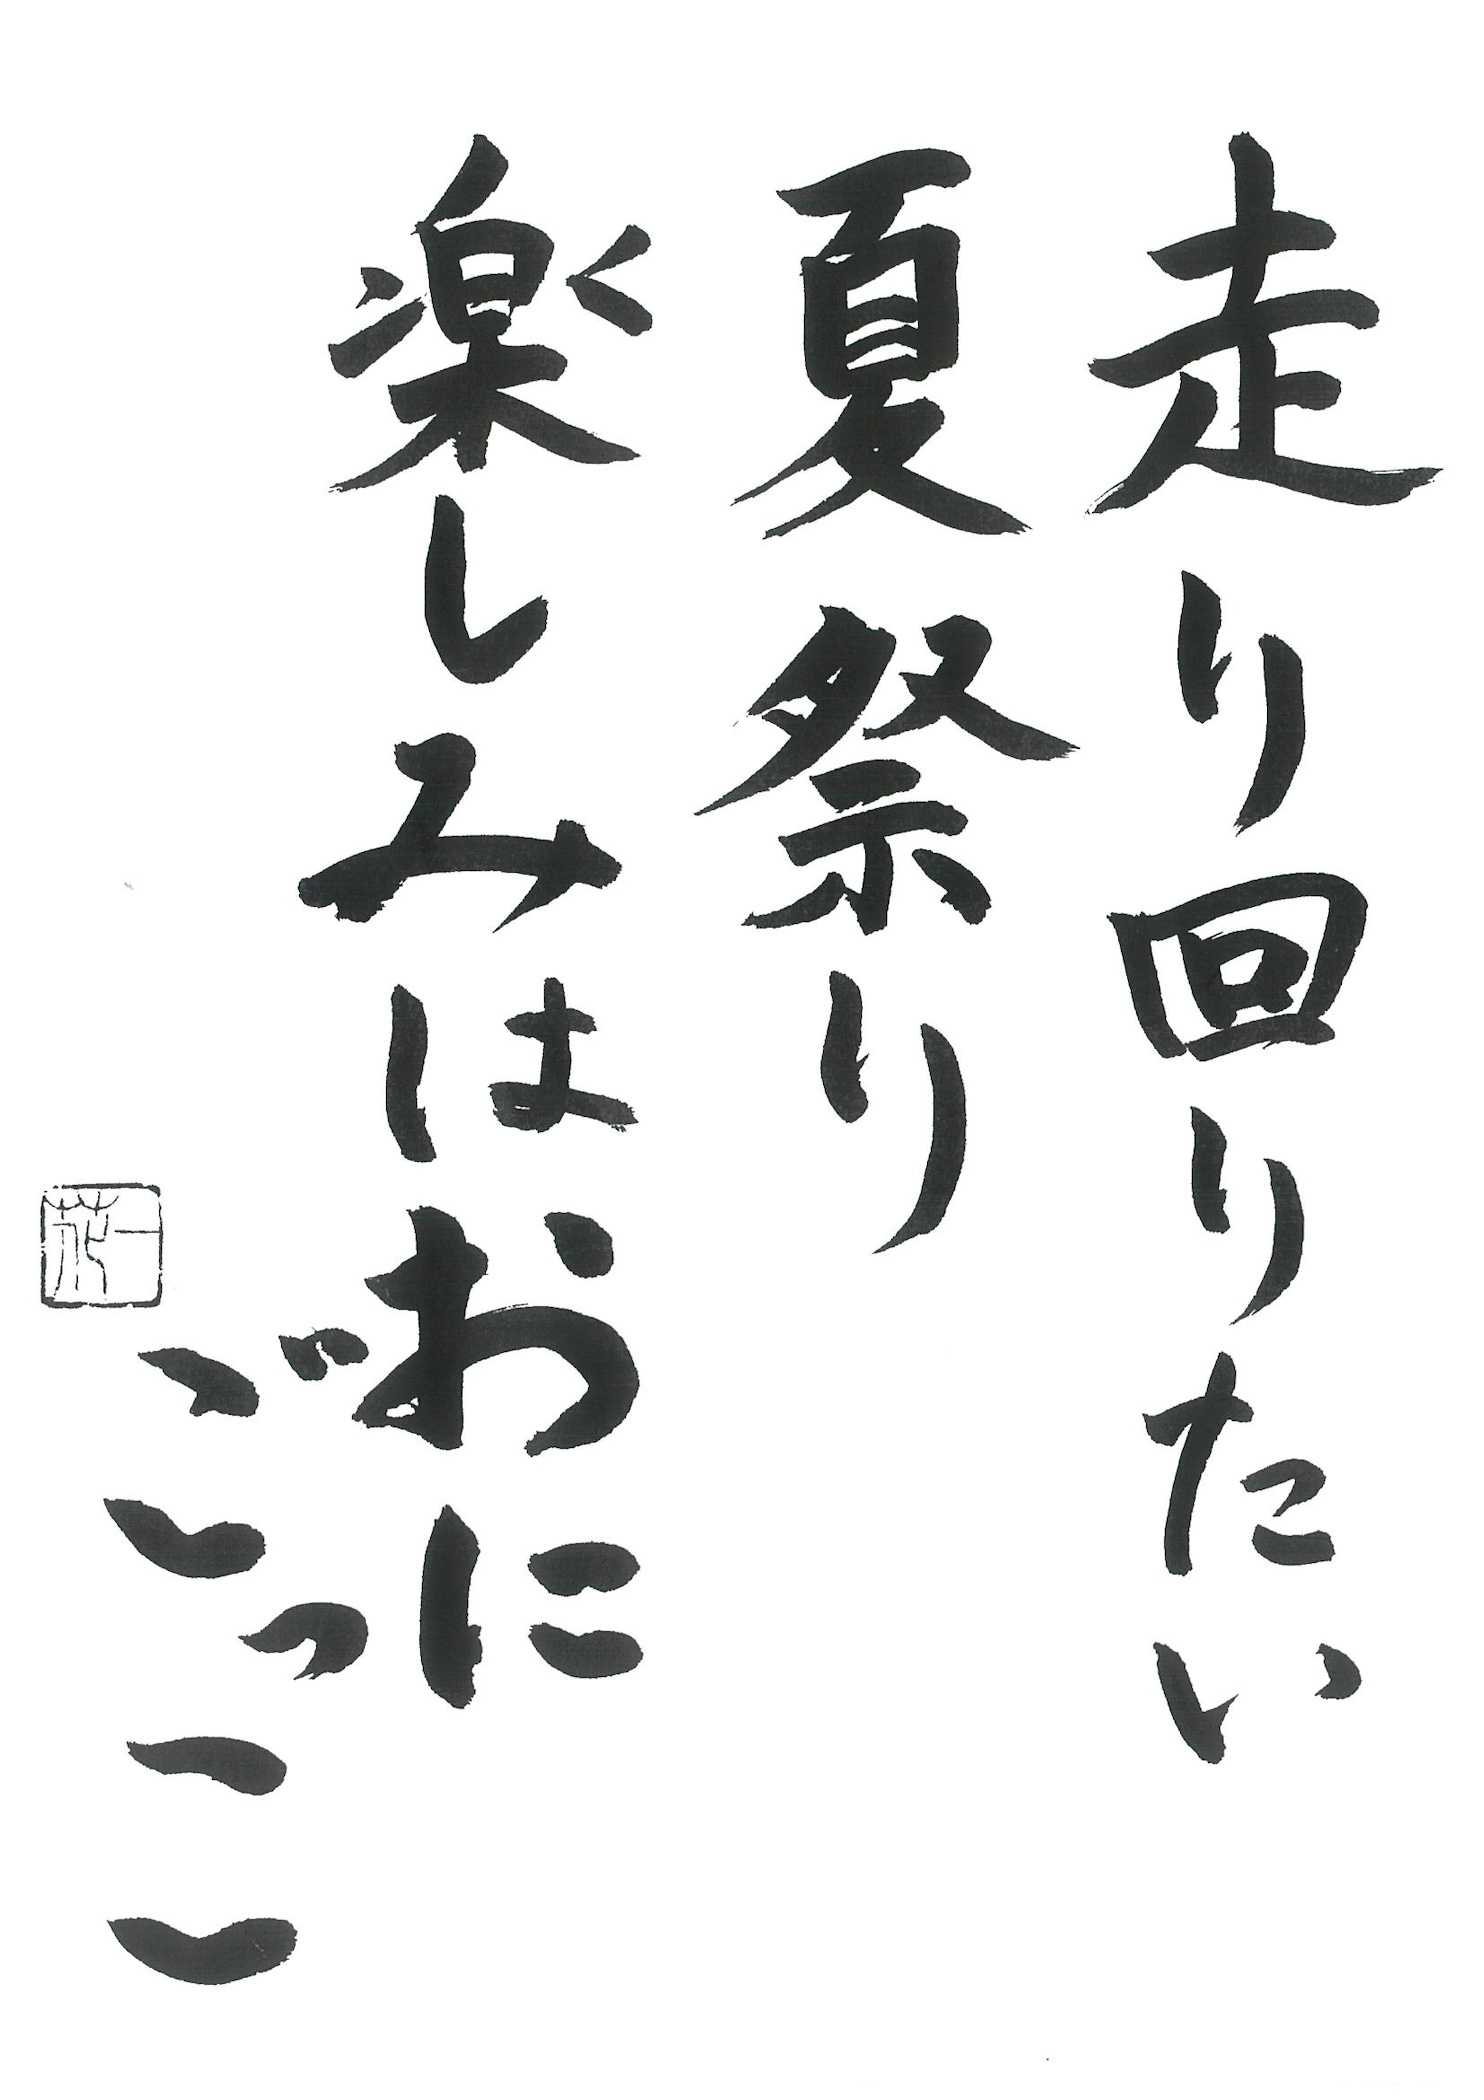 走り回りたい
夏祭り
楽しみはおに
ごっこ